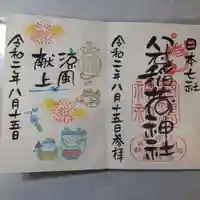 日本七社
稲荷神社
令和二年八月十五日参拝
涼風
献上
令和二年八月十五日